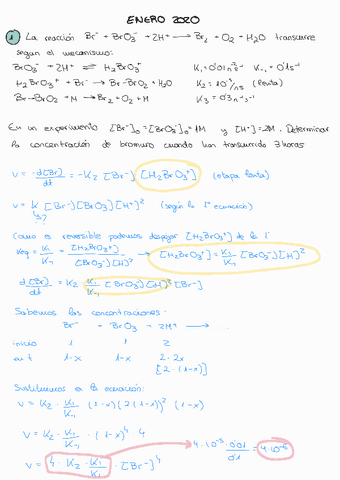 ENERO 2020
1 La reacción Br⁻ + BrO3⁻ + 2H⁺ → Br2 + O2 + H2O transcurre
según el mecanismo:
BrO3⁻ + 2H⁺ ⇌ H2BrO3⁺ K1 = 0'01 K-1 = 0'1 s⁻¹
H2BrO3⁺ + Br⁻ → Br-BrO2 + H2O K2 = (lenta)
Br-BrO2 + M → Br2 + O2 + M K3 = 0'3 M⁻¹s⁻¹
En un experimento [Br⁻]0 = [BrO3⁻]0 = 1M y [H⁺] = 2M. Determinar
la concentración de bromuro cuando han transcurrido 3 horas
v = -d[Br]/dt = -K2 [Br⁻] [H2BrO3⁺] (etapa lenta)
v = K [Br⁻][BrO3⁻][H⁺]² (según la 1ª ecuación)
Como es reversible podemos despejar [H2BrO3⁺] de la 1ª
Keq = K1/K-1 = [H2BrO3⁺]/[BrO3⁻][H]² → [H2BrO3⁺] = K1/K-1 [BrO3⁻][H]²
d[Br]/dt = K2 K1/K-1 [BrO3⁻][H]² [Br⁻]
Sabemos las concentraciones:
Br⁻ + BrO3 + 2H⁺ →
inicio 1 1 2
en t 1-x 1-x 2-2x
[2·(1-x)]
Sustituimos a la ecuación:
v = K2 · K1/K-1 (1-x)(2(1-x))² (1-x)
v = K2 · K1/K-1 · (1-x)⁴ 4
4·10⁻⁵ · 0'01/0'1 = 4·10⁻⁶
v = 4·K2·K1/K-1 · [Br⁻]⁴